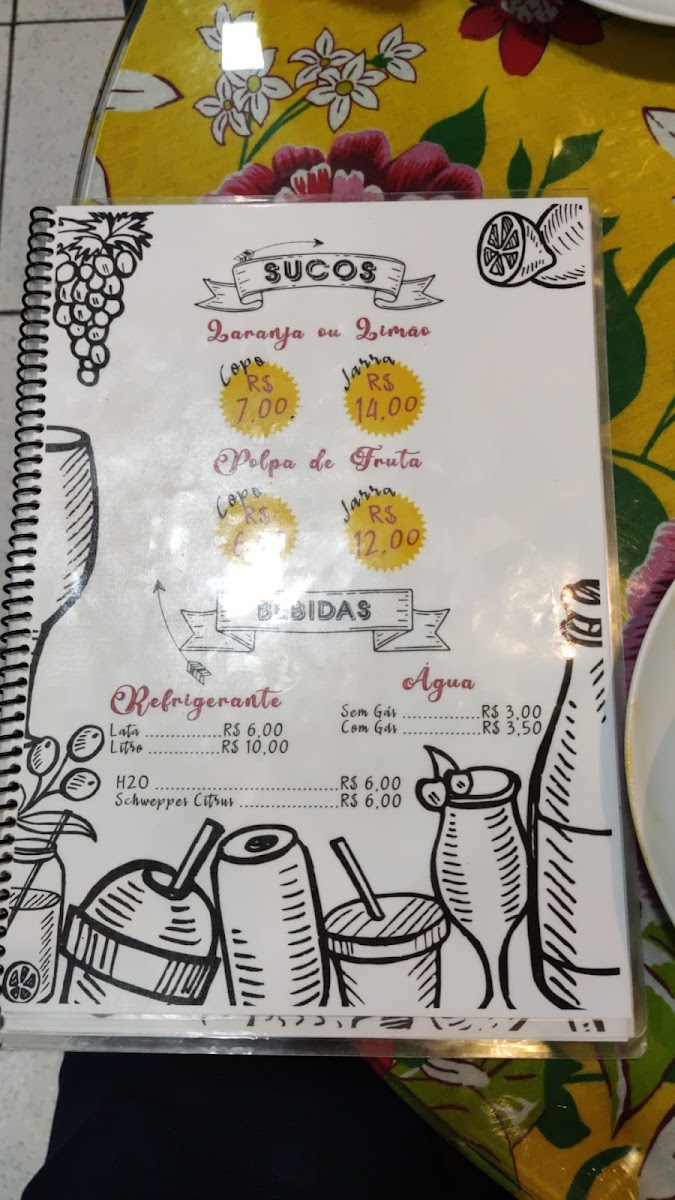 SUCOS
Laranja ou Limão
Copo R$ 7,00
Jarra R$ 14,00
Polpa de Fruta
Copo R$
Jarra R$ 12,00
BEBIDAS
Refrigerante
Lata ..............R$ 6,00
Litro ..............R$ 10,00
Água
Sem Gás ..............R$ 3,00
Com Gás ..............R$ 3,50
H2O ..................................R$ 6,00
Schweppes Citrus ..................R$ 6,00